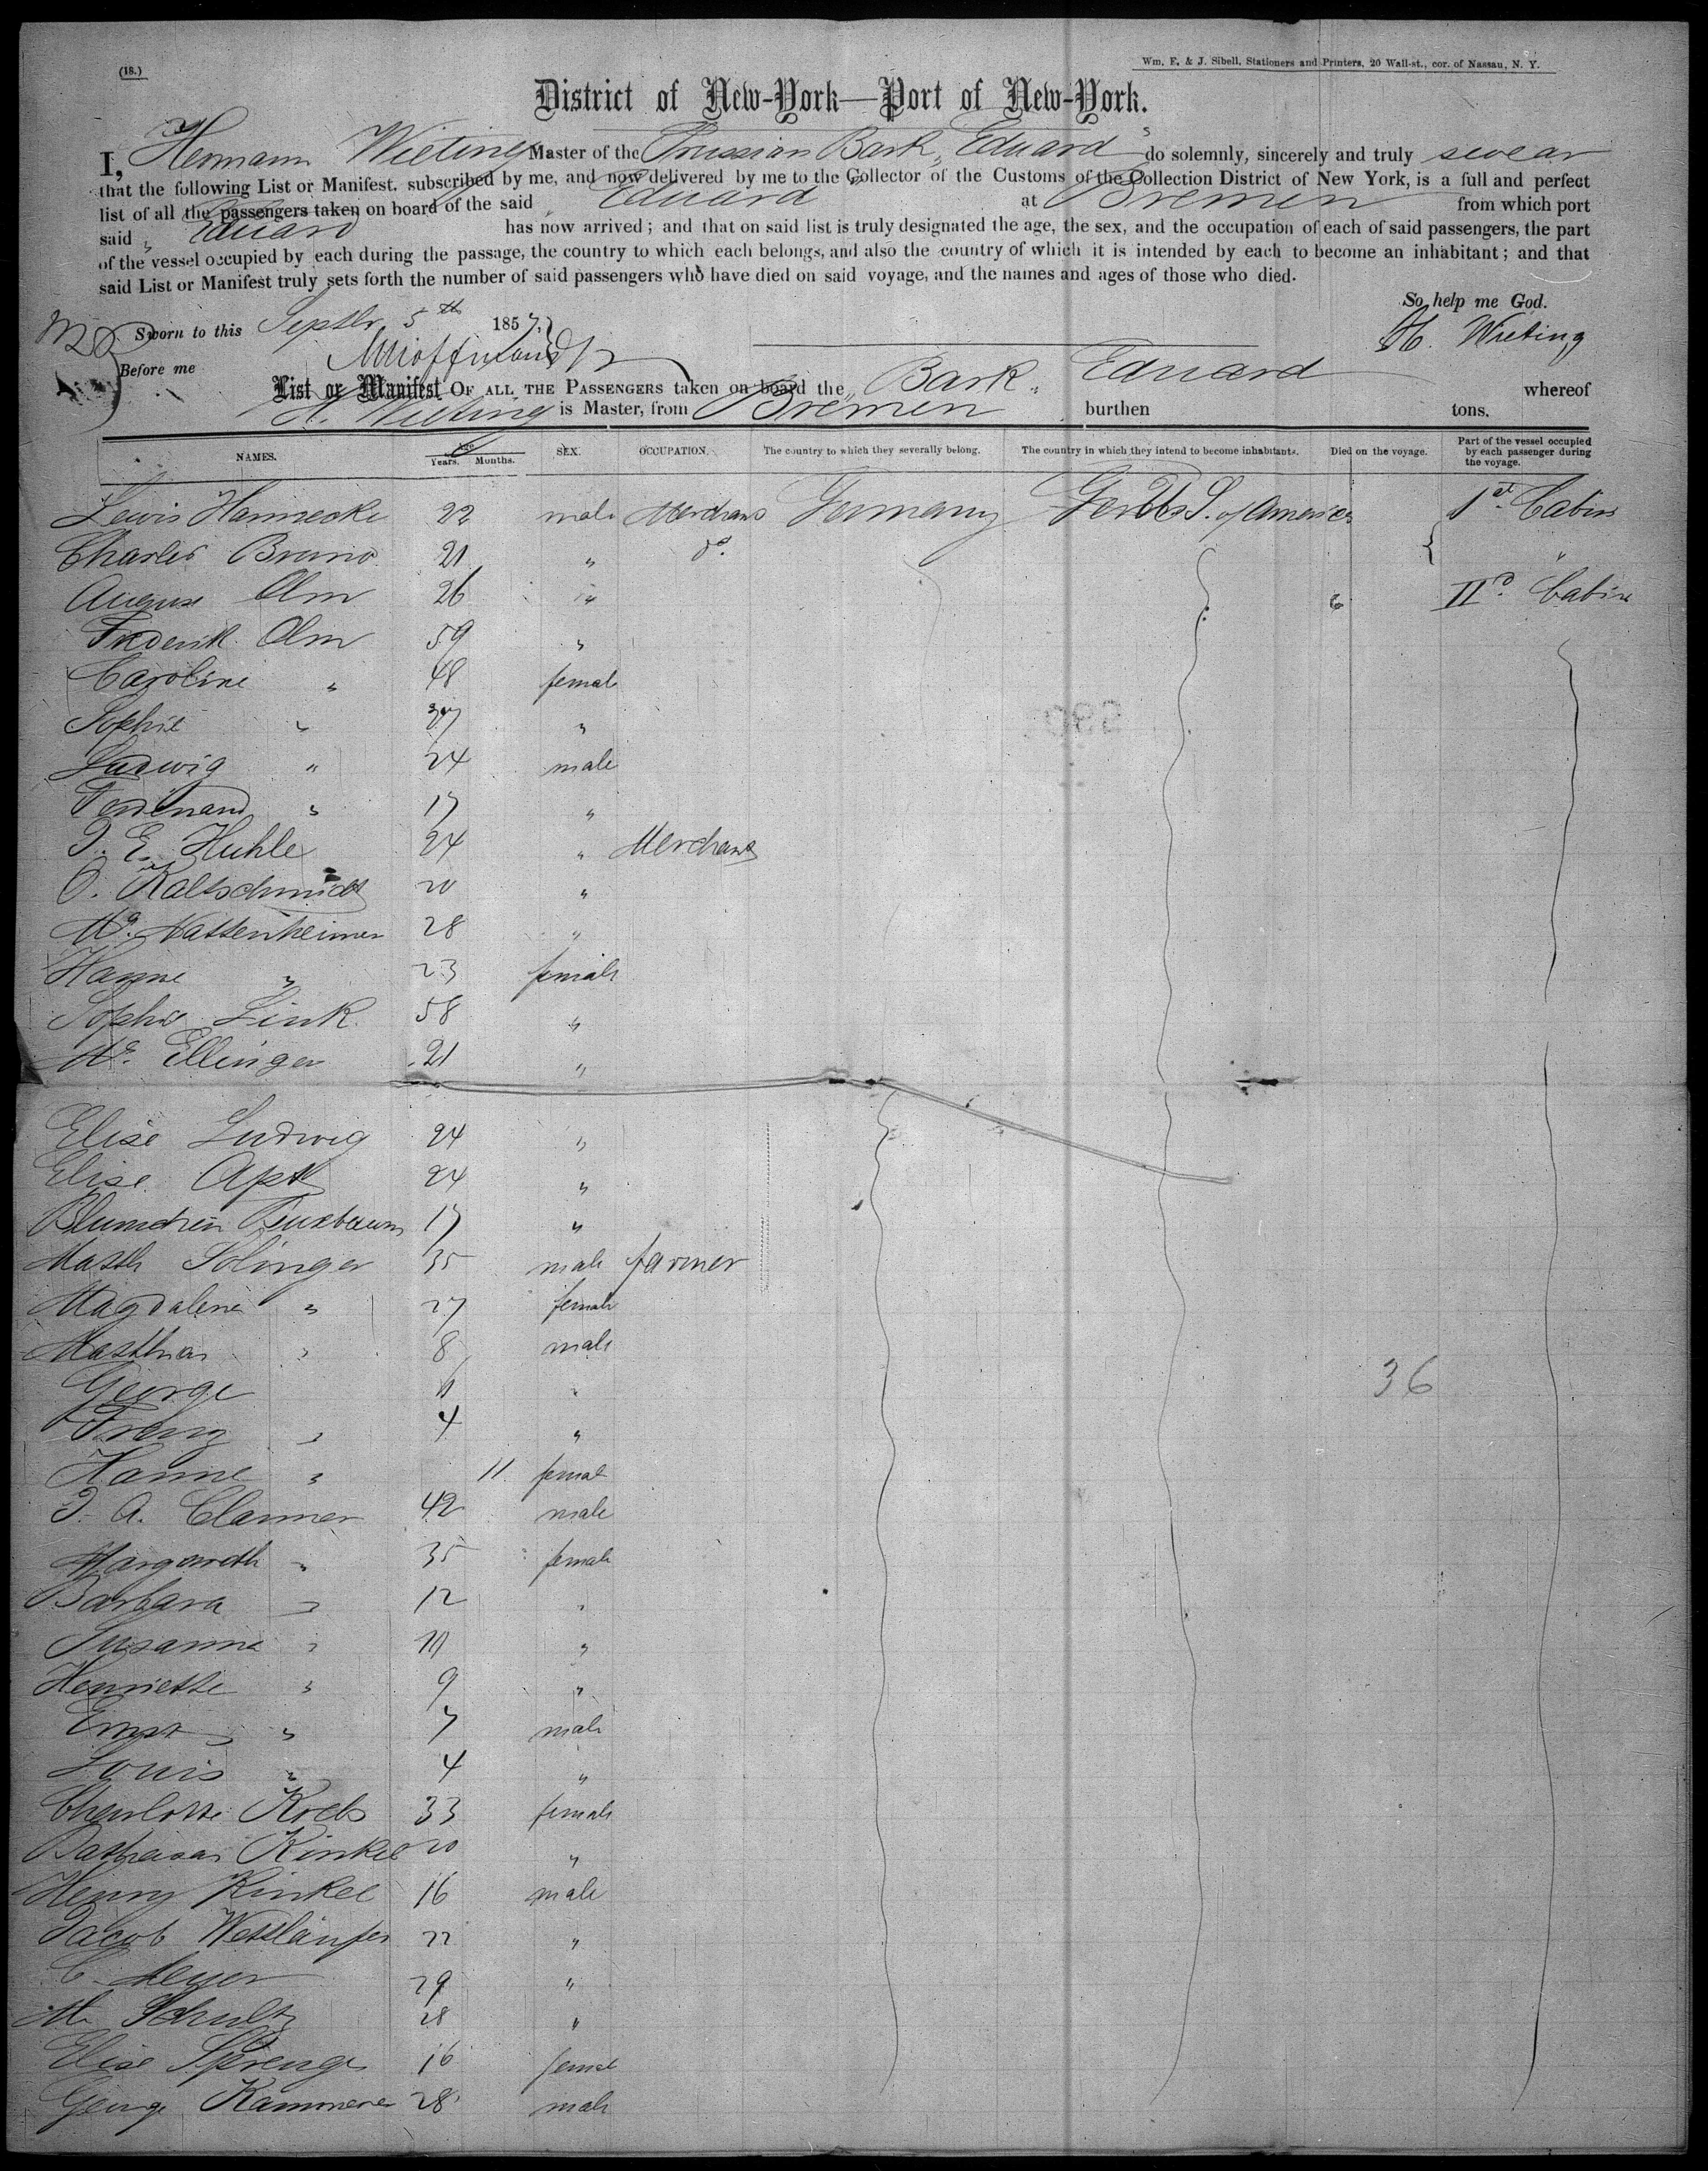 (18.)
Wm. E. & J. Sibell, Stationers and Printers, 20 Wall-st., cor. of Nassau, N. Y.
District of New-York—Port of New-York.
I, Hermann Wieting Master of the Prussian Bark „ Eduard " do solemnly, sincerely and truly swear
that the following List or Manifest. subscribed by me, and now delivered by me to the Collector of the Customs of the Collection District of New York, is a full and perfect
list of all the passengers taken on board of the said „ Eduard " at Bremen from which port
said „ Eduard has now arrived; and that on said list is truly designated the age, the sex, and the occupation of each of said passengers, the part
of the vessel occupied by each during the passage, the country to which each belongs, and also the country of which it is intended by each to become an inhabitant; and that
said List or Manifest truly sets forth the number of said passengers who have died on said voyage, and the names and ages of those who died.
So help me God.
Sworn to this Septbr 5th 1857,
H. Wieting
Before me
List or Manifest OF ALL THE PASSENGERS taken on board the „ Bark „ Eduard whereof
H. Wieting is Master, from Bremen burthen tons.
NAMES. Age Years. Months. SEX. OCCUPATION. The country to which they severally belong. The country in which they intend to become inhabitants. Died on the voyage. Part of the vessel occupied by each passenger during the voyage.
Lewis Hannecke 22 male Merchant Germany U. S. of America 1st Cabin
Charles Bruno 21 " do. "
August Olm 26 " IId. Cabin
Frederik Olm 59 "
Caroline " 48 female
Sophie " 27 "
Ludwig " 24 male
Ferdinand " 17 "
J. E. Huhle 24 " Merchant
O. Kaltschmidt 20 "
Nattenheimer 28 "
Hanne " 23 female
Sophie Link 58 "
Ellinger 21 "
Elise Ludwig 24 "
Elise Apt 24 "
Blumchen Buxbaum 17 "
Matth Solinger 35 male farmer
Magdalene " 27 female
Matthias " 8 male
George "
Franz " 4 "
Hanne " 11 female
J. A. Clanner 42 male
Margareth " 35 female
Barbara " 12 "
Susanna " 11 "
Henriette " 9 "
Ernst " 7 male
Louis " 4 "
Charlotte Krebs 33 female
Kinkel 20 "
Henry Kinkel 16 male
Jacob Wetzläufer 22 "
C. Meyer 29 "
M. Schultz 28 "
Elise Sprenge 16 female
George Kammerer 28 male
36